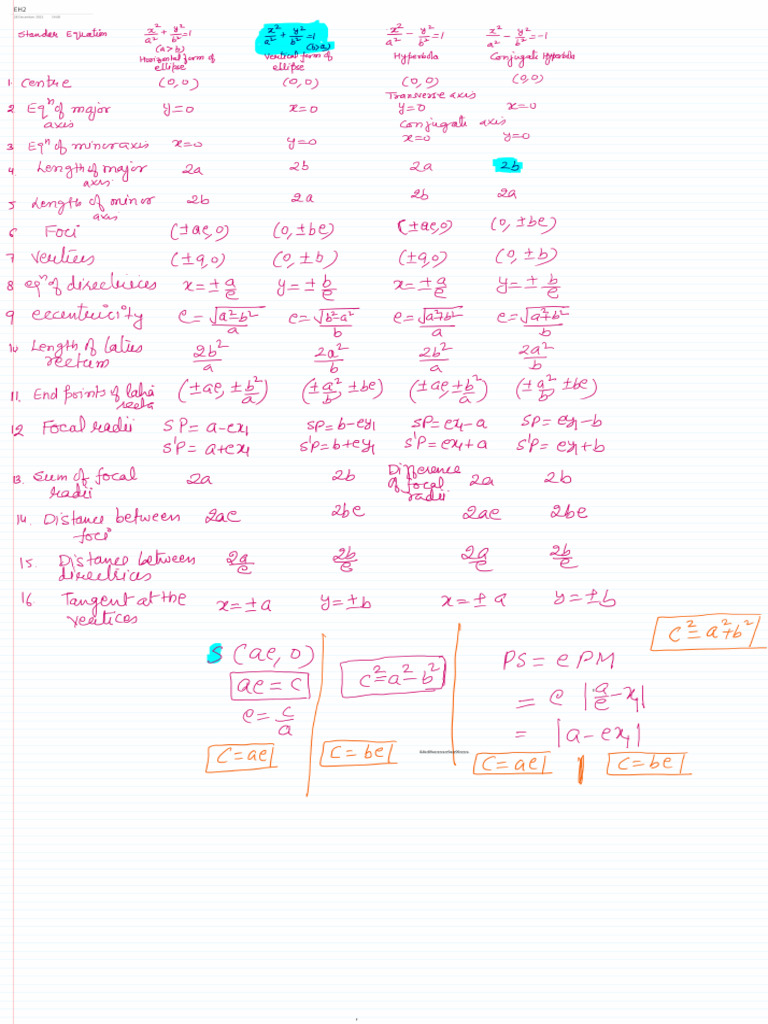 EH2
Stander Equation x²/a² + y²/b² = 1 x²/a² + y²/b² = 1 x²/a² − y²/b² = 1 x²/a² − y²/b² = −1
(a>b) (b>a)
Horizontal form of ellipse Vertical form of ellipse Hyperbola Conjugate Hyperbola
1. Centre (0,0) (0,0) (0,0) (0,0)
Transverse axis
2 Eqⁿ of major axis y=0 x=0 y=0 x=0
Conjugate axis
3 Eqⁿ of minor axis x=0 y=0 x=0 y=0
4. Length of major axis 2a 2b 2a 2b
5 Length of minor axis 2b 2a 2b 2a
6 Foci (±ae,0) (0,±be) (±ae,0) (0,±be)
7 Vertices (±a,0) (0,±b) (±a,0) (0,±b)
8 eqⁿ of directrices x=±a/e y=±b/e x=±a/e y=±b/e
9 eccentricity e=√(a²−b²)/a e=√(b²−a²)/b e=√(a²+b²)/a e=√(a²+b²)/b
10 Length of latus rectum 2b²/a 2a²/b 2b²/a 2a²/b
11. End points of latra recta (±ae, ±b²/a) (±a²/b, ±be) (±ae, ±b²/a) (±a²/b, ±be)
12 Focal radii SP = a−ex₁ SP = b−ey₁ SP = ex₁−a SP = ey₁−b
S'P = a+ex₁ S'P = b+ey₁ S'P = ex₁+a S'P = ey₁+b
13. Sum of focal radii 2a 2b Difference of focal radii 2a 2b
14. Distance between foci 2ae 2be 2ae 2be
15. Distance between directrices 2a/e 2b/e 2a/e 2b/e
16. Tangent at the vertices x=±a y=±b x=±a y=±b
c²=a²+b²
S (ae, 0)
ae = c
e = c/a
c=ae
c²=a²−b²
c=be
PS = e PM
= e |a/e − x₁|
= |a−ex₁|
c=ae c=be